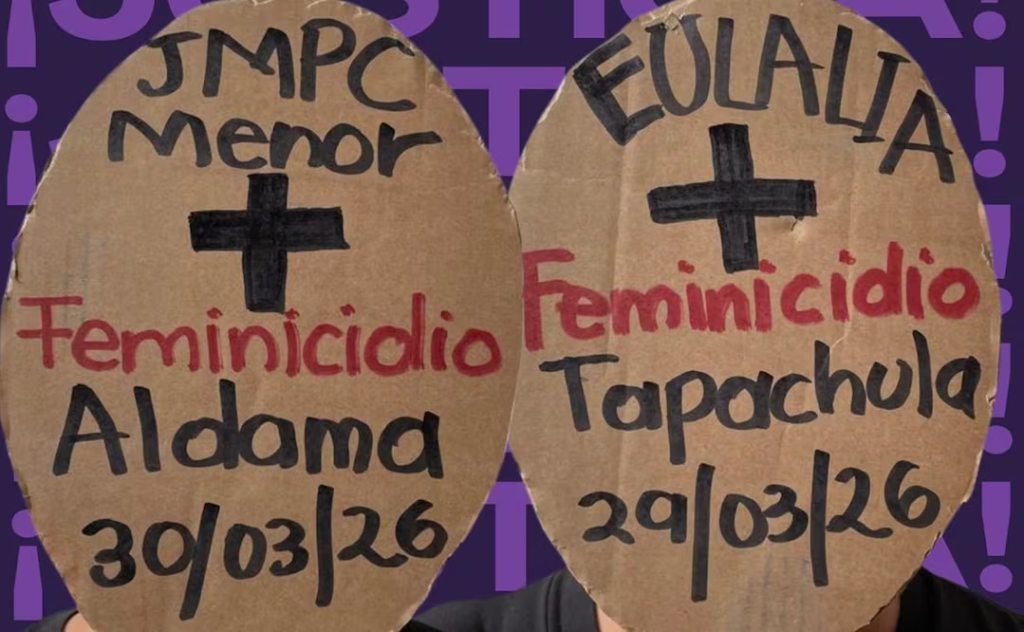 ¡JUSTICIA!
JMPC
Menor
Feminicidio
Aldama
30/03/26
EULALIA
Feminicidio
Tapachula
29/03/26